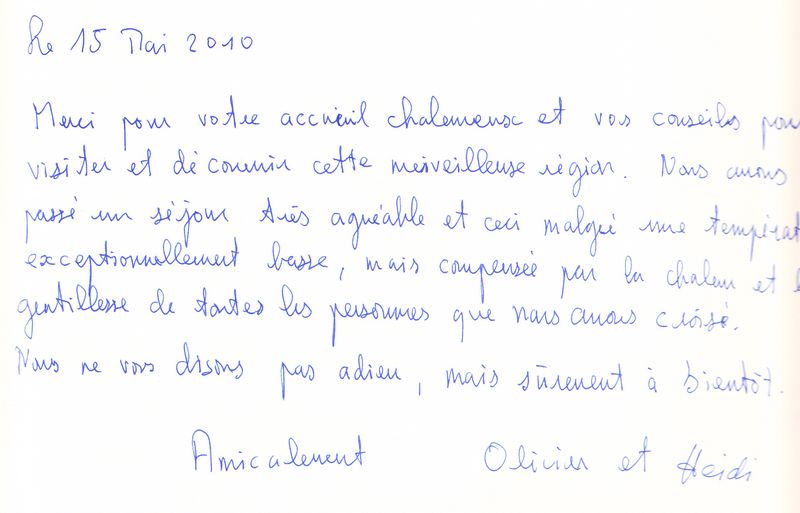 Le 15 Mai 2010
Merci pour votre accueil chaleureux et vos conseils pour
visiter et découvrir cette merveilleuse région. Nous avons
passé un séjour très agréable et ceci malgré une températ
exceptionnellement basse, mais compensée par la chaleur et l
gentillesse de toutes les personnes que nous avons croisé.
Nous ne vous disons pas adieu, mais sûrement à bientôt.
Amicalement Olivier et Heidi